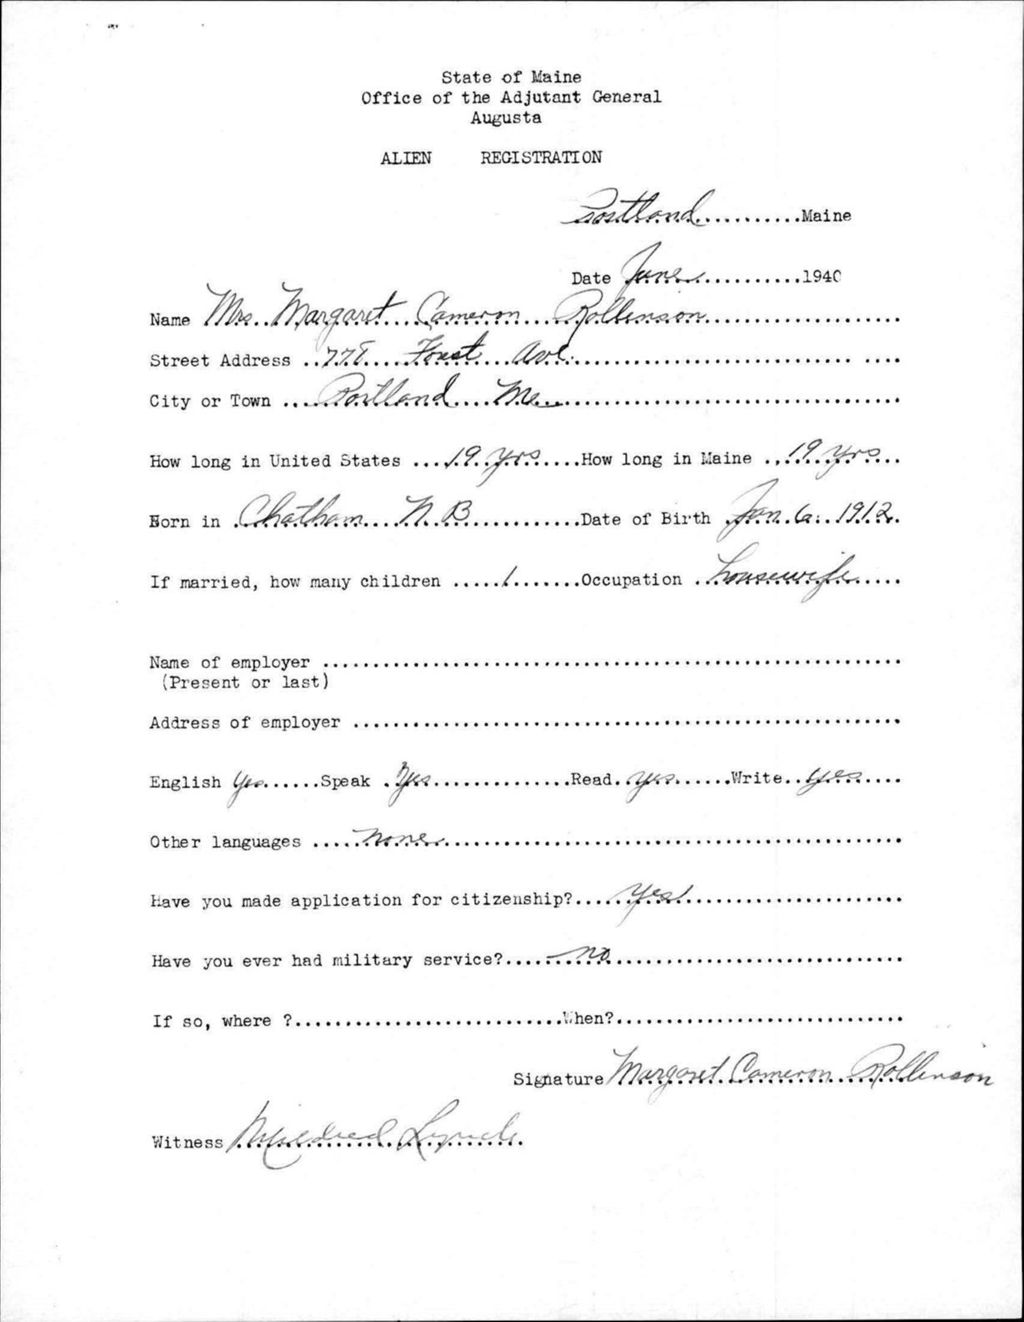 State of Maine
Office of the Adjutant General
Augusta
ALIEN REGISTRATION
Portland...........Maine
Date June............1940
Name Mrs. Margaret Cameron Rollinson
Street Address ..778 Forest Ave.
City or Town ....Portland....Me.
How long in United States ...19 yrs.....How long in Maine ..19 yrs...
Born in .Chatham...N.B............Date of Birth .Jan. 6, 1912.
If married, how many children .....1.......Occupation .housewife.....
Name of employer
(Present or last)
Address of employer
English Yes......Speak .Yes...............Read.yes......Write..yes....
Other languages .....None
Have you made application for citizenship?.....Yes
Have you ever had military service?.....no
If so, where ?...........................When?
Signature Margaret Cameron Rollinson
Witness Mildred Lynch